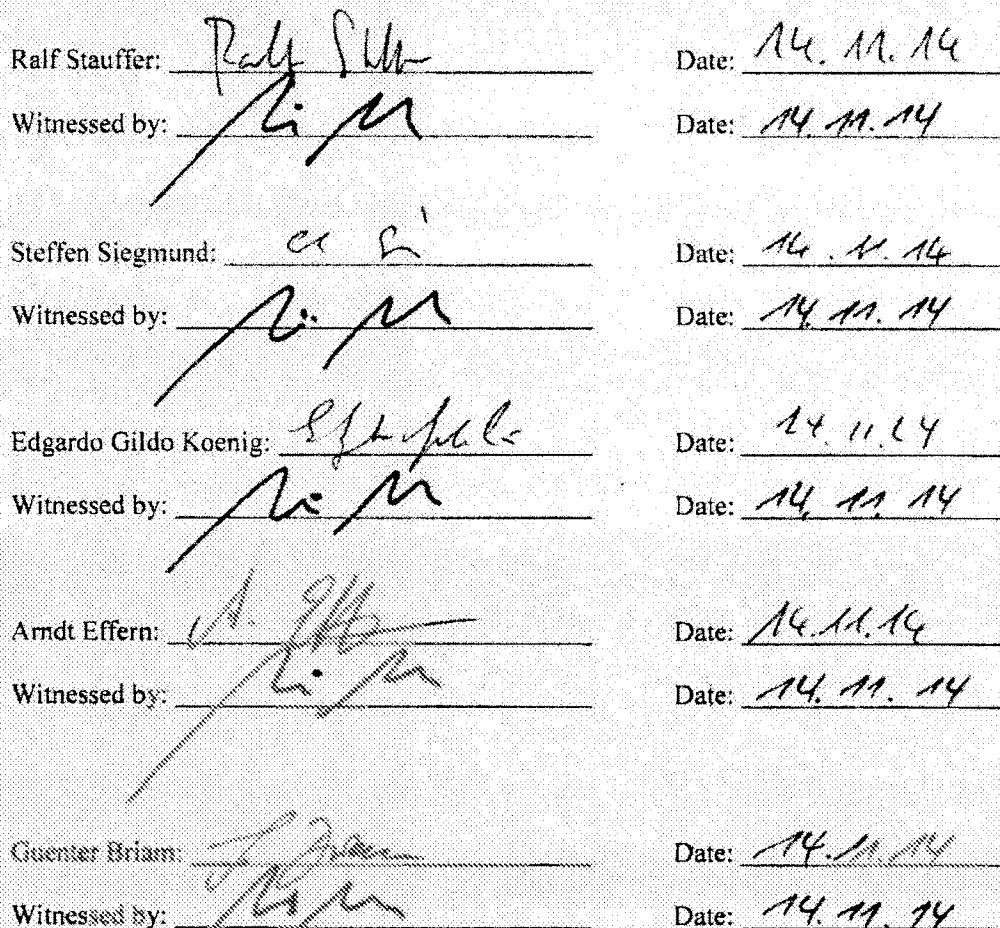 Ralf Stauffer: Ralf Date: 14.11.14
Witnessed by: Date: 14.11.14
Steffen Siegmund: Date: 14.11.14
Witnessed by: Date: 14.11.14
Edgardo Gildo Koenig: Date: 14.11.14
Witnessed by: Date: 14.11.14
Arndt Effern: Date: 14.11.14
Witnessed by: Date: 14.11.14
Guenter Briam: Date: 14.11.14
Witnessed by: Date: 14.11.14